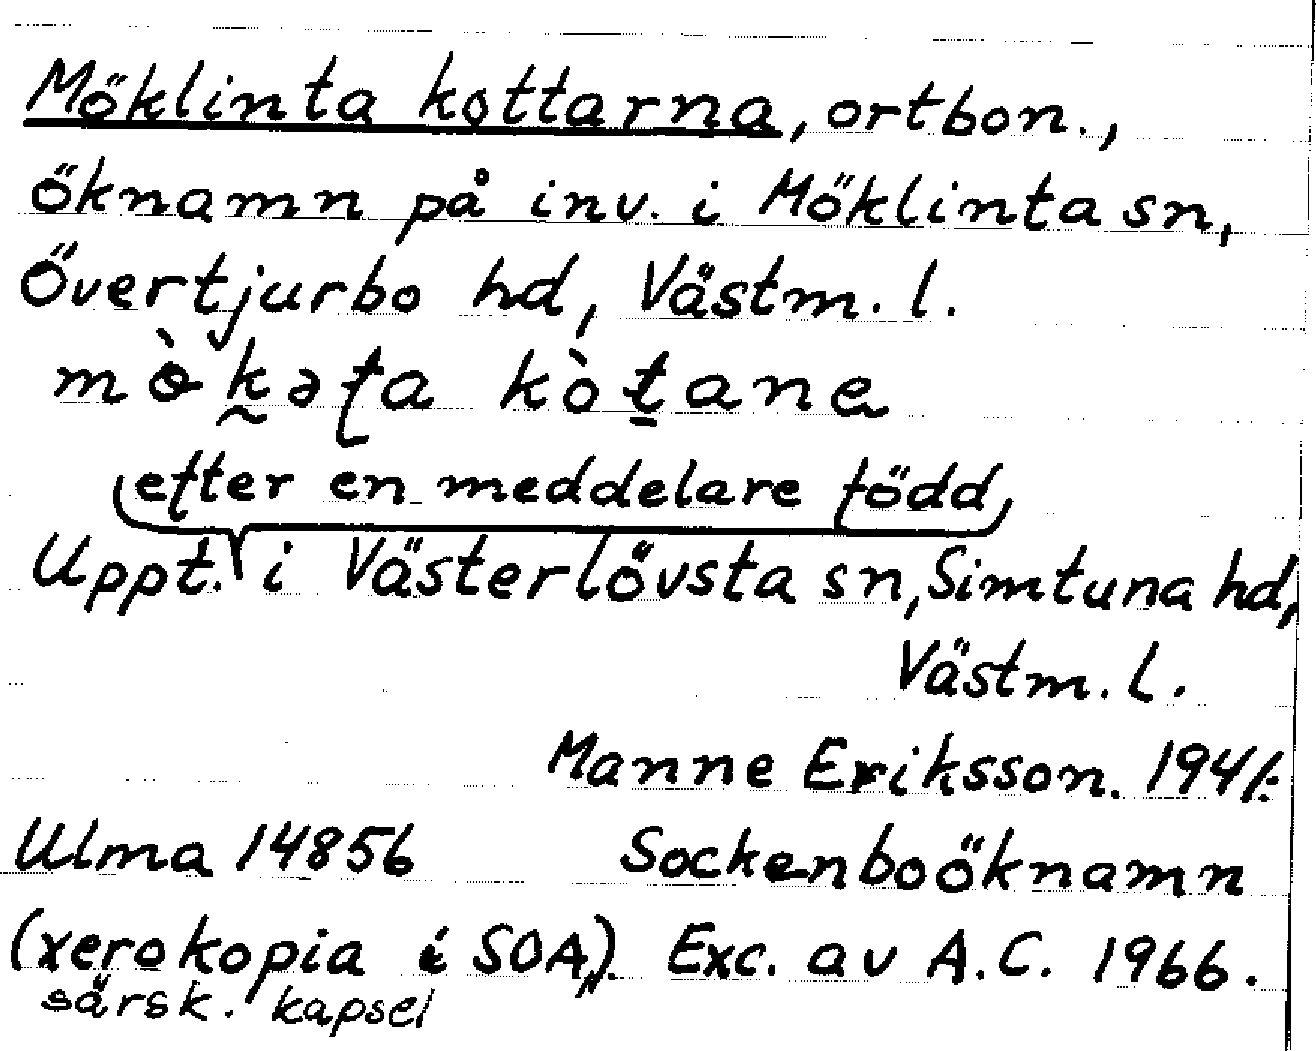 Möklinta kottarna, ortbon.,
öknamn på inv. i Möklinta sn,
Övertjurbo hd, Västm. l.
kòt̠ane
efter en meddelare född
Uppt. i Västerlövsta sn, Simtuna hd,
Västm. l.
Manne Eriksson. 1941.
Ulma 14856 Sockenboöknamn
(xerokopia i SOA,). Exc. av A.C. 1966.
särsk. kapsel